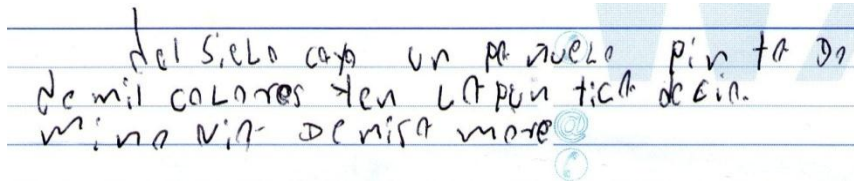 del sielo cayo un pa nuelo pin ta do
de mil colores y en la pun tica decia.
mi no via de mis a more